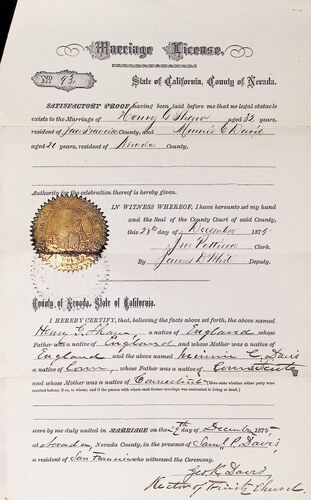 Marriage License.
No 93. State of California, County of Nevada.
SATISFACTORY PROOF having been laid before me that no legal obstacle
exists to the Marriage of Henry G Shaw aged 32 years,
resident of San Francisco County, and Minnie C Davis
aged 20 years, resident of Nevada County,
Authority for the celebration thereof is hereby given.
IN WITNESS WHEREOF, I have hereunto set my hand
and the Seal of the County Court of said County,
this 28th day of December 1875
Jno Pattison Clerk.
By James D Deputy.
County of Nevada, State of California.
I HEREBY CERTIFY, that, believing the facts above set forth, the above named
Henry G. Shaw, a native of England whose
Father was a native of England and whose Mother was a native of
England and the above named Minnie C. Davis
a native of Conn., whose Father was a native of Connecticut
and whose Mother was a native of Connecticut Here state whether either party were
married before; if so, to whom; and if the persons with whom such former marriage was contracted is living or dead.]
were by me duly united in MARRIAGE on the 29th of December 1875
at Nevada, Nevada County, in the presence of Saml P. Davis
a resident of San Francisco who witnessed the Ceremony.
Geo. R. Davis,
Rector of Trinity Church